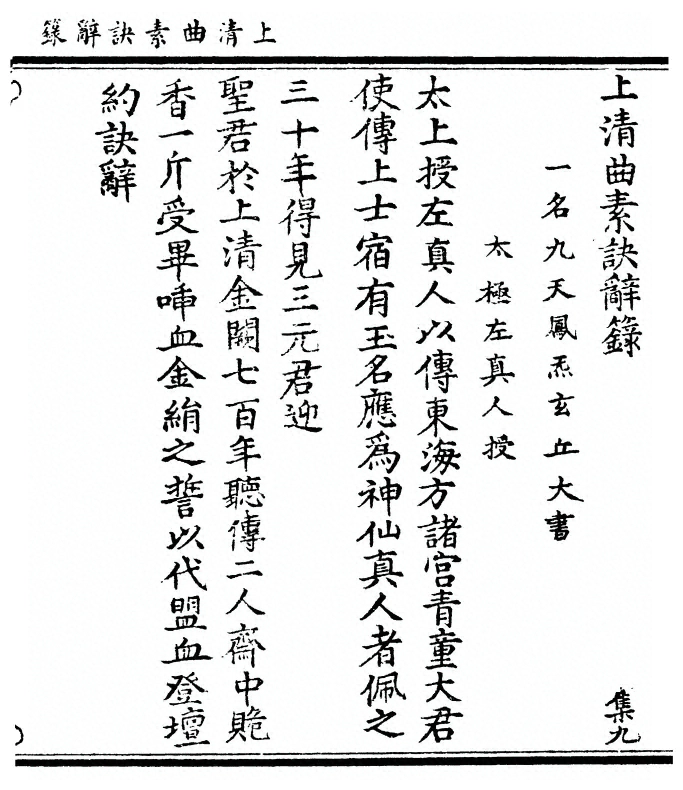 上清曲素訣辭籙
上清曲素訣辭籙
集九
一名九天鳳炁玄丘大書
太極左真人授
太上授左真人以傳東海方諸宮青童大君
使傳上士宿有玉名應爲神仙真人者佩之
三十年得見三元君迎
聖君於上清金闕七百年聽傳二人齋中貽
香一斤受畢唾血金絹之誓以代盟血登壇
約訣辭